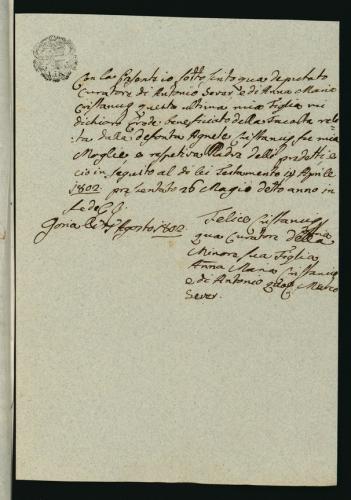 Con la presente io sottoscritto qua deputato
Curatore di Antonio Sever e di Anna Maria
questa ultima mia Figlia mi
dichiaro Erede beneficiato della facoltà
dalla defonta Agnese fu mia
Moglie e respetiva Madre delli predetti e
ciò in seguito al di lei Testamento 19 Aprile
1802. presentato 26 Magio detto anno in
fede
Goria li Agosto 1802.
Felice
qua Curatore della
Minore sua Figlia
Anna Maria
e di Antonio Marco
Sever.